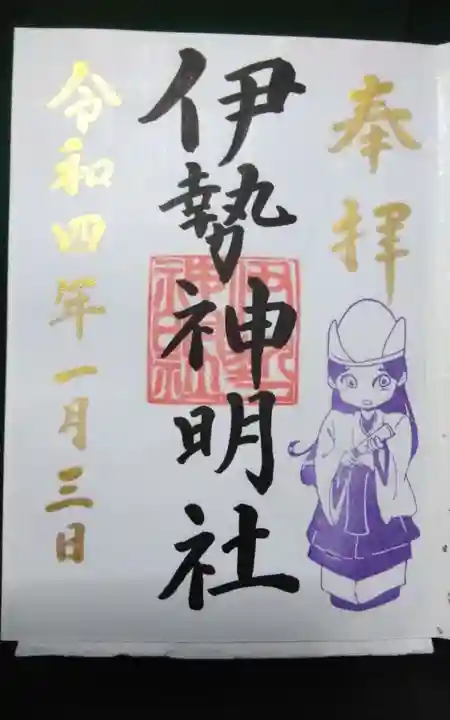 奉拝
伊勢神明社
令和四年一月三日